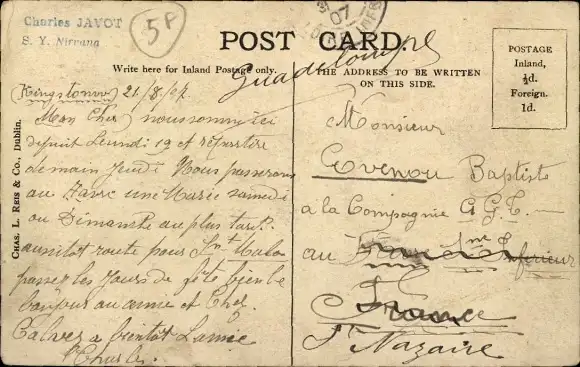 Charles JAVOT
S. Y. Nirvana
5F
07
POST CARD.
Guadeloupe
Write here for Inland Postage only.
THE ADDRESS TO BE WRITTEN
ON THIS SIDE.
POSTAGE
Inland,
½d.
Foreign.
1d.
CHAS. L. REIS & CO., DUBLIN.
Kingstown 21/8/07
Mon Cher nous somm ici
depuit Leundi 19 et repartire
demain Jeudi Nous passerons
au Havre une Marée samedi
ou Dimanche au plus tart
aussitot route pour St Malo
passez les jours de fete bien
bonjour au amie et Chez
Calvez a bientot Lamie
Charles.
Monsieur
Evenou Baptiste
a la Compagnie G G T
au
Inferieur
France
St Nazaire